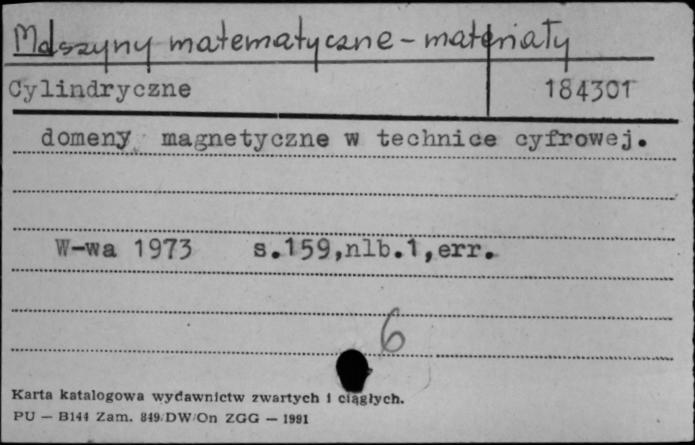 Maszyny matematyczne - materiały
Cylindryczne 184301
domeny magnetyczne w technice cyfrowej.
W-wa 1973 s.159,nlb.1,err.
6
Karta katalogowa wydawnictw zwartych i ciągłych.
PU — B144 Zam. 849/DW/On ZGG — 1991